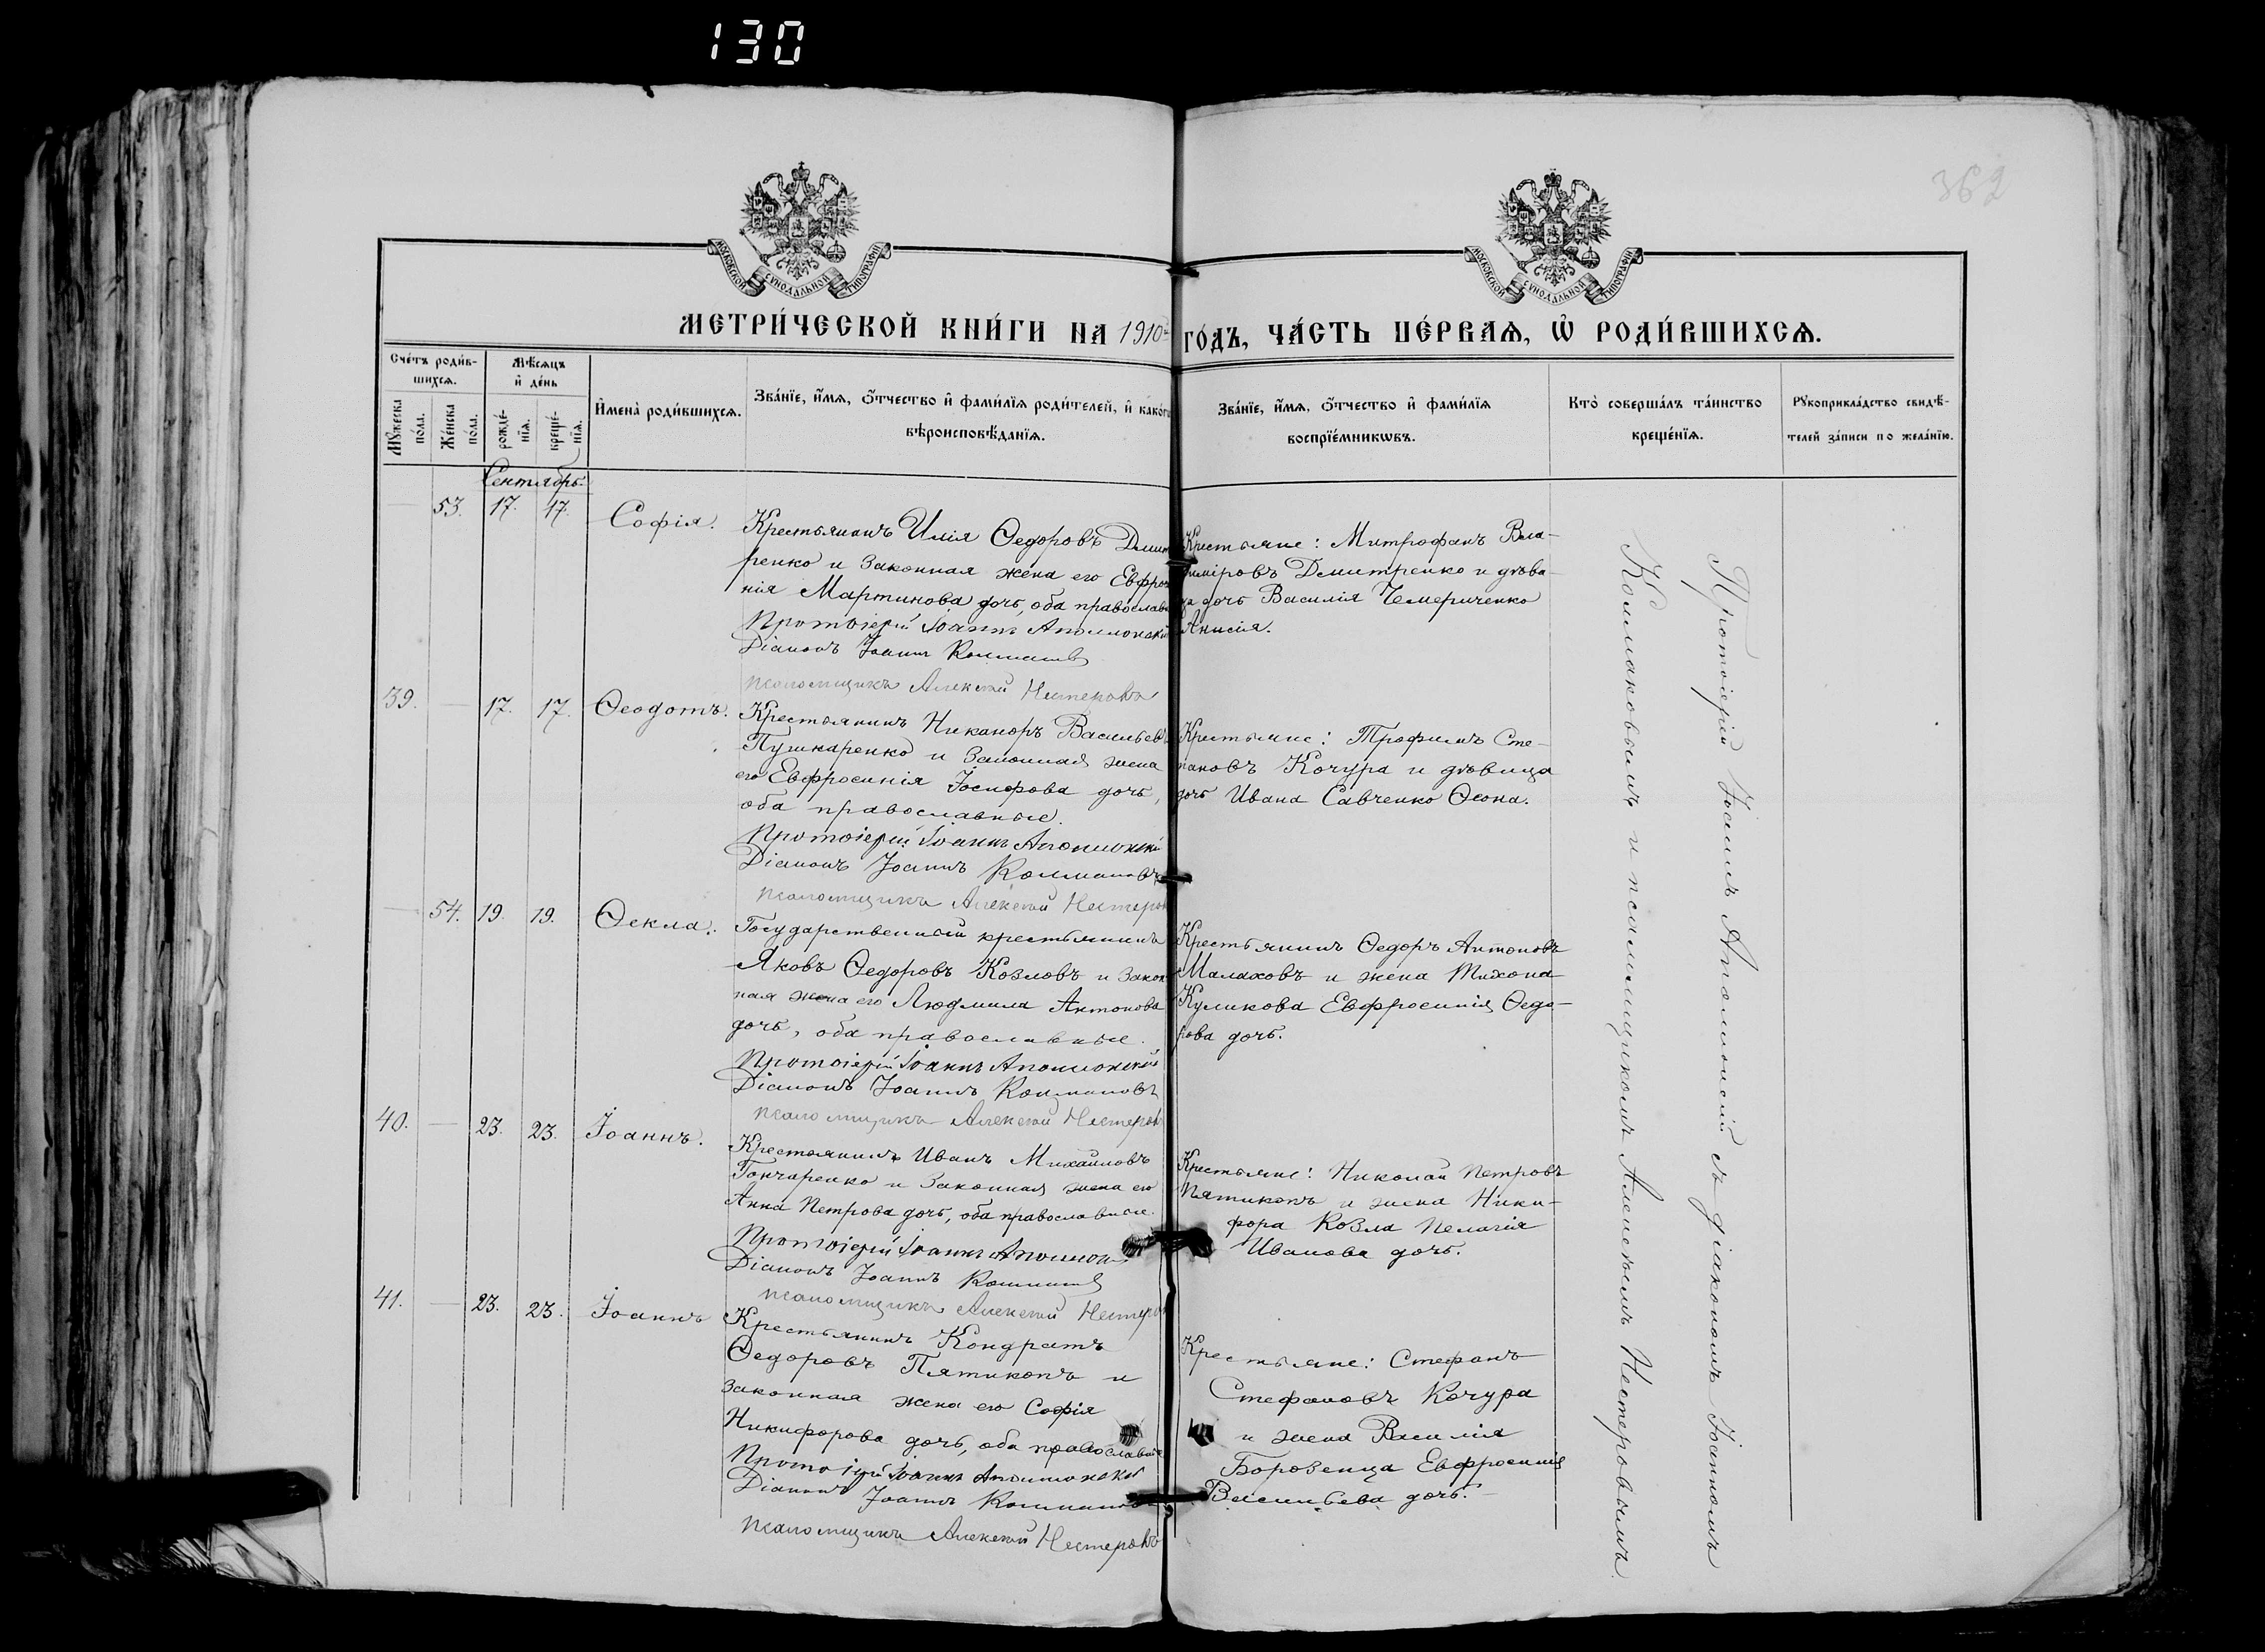 130
362
МОСКОВСКОЙ СѴНОДАЛЬНОЙ ТИПОГРАФІИ
МОСКОВСКОЙ СѴНОДАЛЬНОЙ ТИПОГРАФІИ
МЕТРИ́ЧЕСКОЙ КНИ́ГИ НА 1910й ГО́ДЪ, ЧА́СТЬ ПЕ́РВАѦ, Ѡ҆ РОДИ́ВШИХСѦ.
Сче́тъ роди́в-
шихсѧ.
Мѣ́сѧцъ
и҆ де́нь
Мꙋ́жеска
по́ла.
Же́нска
по́ла.
рожде́-
нїѧ.
креще́-
нїѧ.
И҆мена̀ роди́вшихсѧ.
Зва́нїе, и҆́мѧ, ѻ҆́тчество и҆ фами́лїѧ роди́телей, и҆ како́гѡ
вѣроисповѣ́данїѧ.
Зва́нїе, и҆́мѧ, ѻ҆́тчество и҆ фами́лїѧ
воспрїе́мникѡвъ.
Кто̀ соверша́лъ та́инство
креще́нїѧ.
Рꙋкоприкла́дство свидѣ́-
телей за́писи по жела́нїю.
Сентябрь
— 53. 17. 17. Софія.
Крестьянинъ Илія Ѳедоровъ Дмит
ренко и законная жена его Евфро
нія Мартинова дочь, оба православ
Протоіерей Іоаннъ Аполлонскій
Діаконъ Іоаннъ Колмаковъ
псаломщикъ Алексѣй Нестеровъ
Крестьяне: Митрофанъ Вла-
диміровъ Демитренко и дѣви-
ца дочь Василія Чемериченко
Анисія.
39. — 17. 17. Ѳеодотъ.
Крестьянинъ Никаноръ Васильевъ
Пушкаренко и законная жена
его Евфросинія Іосифова дочь,
оба православные.
Протоіерей Іоаннъ Аполлонскій
Діаконъ Іоаннъ Колмаковъ
псаломщикъ Алексѣй Нестеров
Крестьяне: Трофимъ Сте-
пановъ Кочура и дѣвица
дочь Ивана Савченко Ѳеона.
— 54. 19. 19. Ѳекла.
Государственный крестьянинъ
Яковъ Ѳедоровъ Козловъ и закон
ная жена его Людмила Антонова
дочь, оба православные.
Протоіерей Іоаннъ Аполлонскій
Діаконъ Іоаннъ Колмаковъ
псаломщикъ Алексѣй Нестеров
Крестьянинъ Ѳедоръ Антоновъ
Малаховъ и жена Тихона
Куликова Евфросинія Ѳедо-
рова дочь.
40. — 23. 23. Іоаннъ.
Крестьянинъ Иванъ Михаиловъ
Гончаренко и законная жена его
Анна Петрова дочь, оба православные.
Протоіерей Іоаннъ Аполлон
Діаконъ Іоаннъ Колмаковъ
псаломщикъ Алексѣй Нестеров
Крестьяне: Николай Петровъ
Пятикопъ и жена Ники-
фора Козла Пелагія
Иванова дочь.
41. — 23. 23. Іоаннъ
Крестьянинъ Кондратъ
Ѳедоровъ Пятикопъ и
законная жена его Софія
Никифорова дочь, оба православные
Протоіерей Іоаннъ Аполлонскій
Діаконъ Іоаннъ Колмаковъ
псаломщикъ Алексѣй Нестеровъ
Крестьяне: Стефанъ
Стефановъ Кочура
и жена Василія
Борозенца Евфросинія
Васильева дочь.
Протоіерей Іоаннъ Аполлонскій съ діакономъ Іоанномъ
Колмаковымъ и псаломщикомъ Алексѣемъ Нестеровымъ.